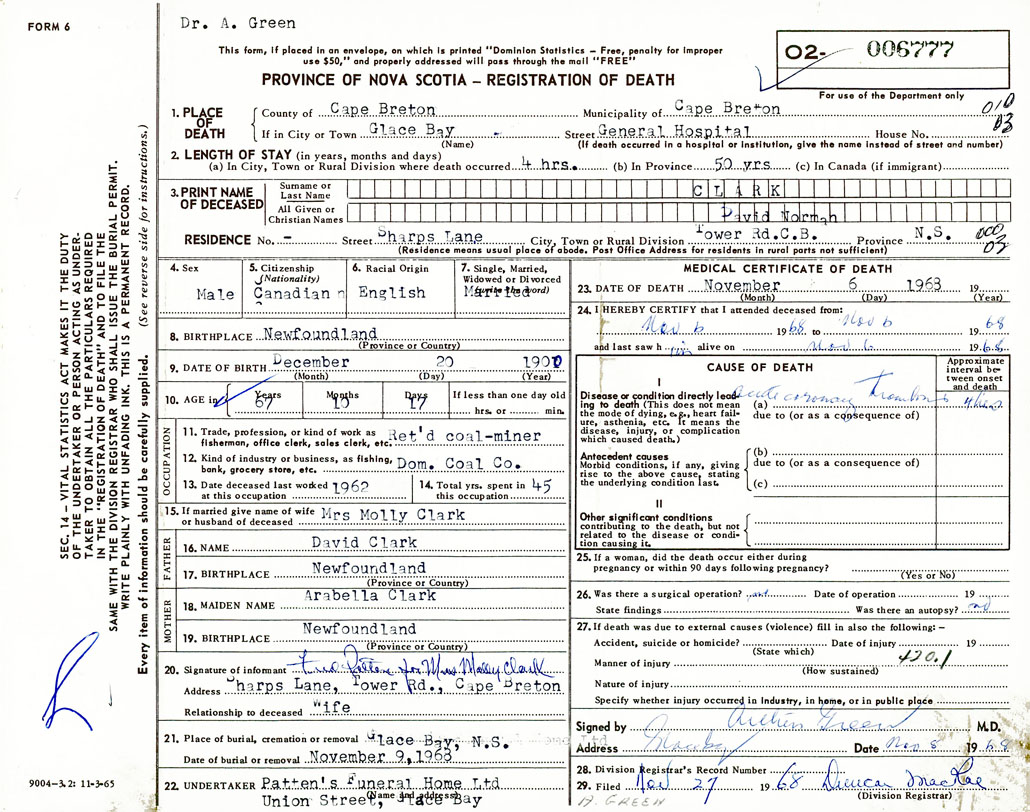 Dr. A. Green
FORM 6
This form, if placed in an envelope, on which is printed "Dominion Statistics – Free, penalty for improper
use $50," and properly addressed will pass through the mail "FREE"
PROVINCE OF NOVA SCOTIA – REGISTRATION OF DEATH
O2- 006777
For use of the Department only
1. PLACE OF DEATH
County of Cape Breton Municipality of Cape Breton
If in City or Town Glace Bay Street General Hospital House No.
(Name) (If death occurred in a hospital or institution, give the name instead of street and number)
010
03
2. LENGTH OF STAY (in years, months and days)
(a) In City, Town or Rural Division where death occurred 4 hrs. (b) In Province 50 yrs (c) In Canada (if immigrant)
3. PRINT NAME OF DECEASED
Surname or Last Name CLARK
All Given or Christian Names David Norman
RESIDENCE No. – Street Sharps Lane City, Town or Rural Division Tower Rd.C.B. Province N.S.
(Residence means usual place of abode. Post Office Address for residents in rural parts not sufficient)
03
4. Sex
Male
5. Citizenship
(Nationality)
Canadian
6. Racial Origin
English
7. Single, Married,
Widowed or Divorced
(write the word)
Married
8. BIRTHPLACE Newfoundland
(Province or Country)
9. DATE OF BIRTH December 20 190
(Month) (Day) (Year)
10. AGE in Years Months Days If less than one day old
67 10 17 hrs. or min.
OCCUPATION
11. Trade, profession, or kind of work as
fisherman, office clerk, sales clerk, etc. Ret'd coal-miner
12. Kind of industry or business, as fishing,
bank, grocery store, etc. Dom. Coal Co.
13. Date deceased last worked
at this occupation 1962
14. Total yrs. spent in
this occupation 45
15. If married give name of wife
or husband of deceased Mrs Molly Clark
FATHER
16. NAME David Clark
17. BIRTHPLACE Newfoundland
(Province or Country)
MOTHER
18. MAIDEN NAME Arabella Clark
19. BIRTHPLACE Newfoundland
(Province or Country)
20. Signature of informant Patten for Mrs Molly Clark
Address Sharps Lane, Tower Rd., Cape Breton
Relationship to deceased Wife
21. Place of burial, cremation or removal Glace Bay, N.S.
Date of burial or removal November 9, 1968
22. UNDERTAKER Patten's Funeral Home Ltd
Union Street, Glace Bay
(Name and address)
MEDICAL CERTIFICATE OF DEATH
23. DATE OF DEATH November 6 1968 19
(Month) (Day) (Year)
24. I HEREBY CERTIFY that I attended deceased from:
Nov 6 1968 to Nov 6 1968
and last saw him alive on Nov 6 1968
CAUSE OF DEATH
Approximate
interval be-
tween onset
and death
I
Disease or condition directly lead-
ing to death (This does not mean
the mode of dying, e.g., heart fail-
ure, asthenia, etc. It means the
disease, injury, or complication
which caused death.)
(a) Acute coronary Thrombosis 4 hrs.
due to (or as a consequence of)
Antecedent causes
Morbid conditions, if any, giving
rise to the above cause, stating
the underlying condition last.
(b)
due to (or as a consequence of)
(c)
II
Other significant conditions
contributing to the death, but not
related to the disease or condi-
tion causing it.
25. If a woman, did the death occur either during
pregnancy or within 90 days following pregnancy?
(Yes or No)
26. Was there a surgical operation? Date of operation 19
State findings Was there an autopsy? no
27. If death was due to external causes (violence) fill in also the following: –
Accident, suicide or homicide? Date of injury 19
(State which)
420.1
Manner of injury
(How sustained)
Nature of injury
Specify whether injury occurred in Industry, in home, or in public place
Signed by Arthur Green M.D.
Address Date Nov 8 1968
28. Division Registrar's Record Number
29. Filed Nov 27 1968 Duncan MacRae
(Division Registrar)
A. GREEN
SEC. 14 – VITAL STATISTICS ACT MAKES IT THE DUTY
OF THE UNDERTAKER OR PERSON ACTING AS UNDER-
TAKER TO OBTAIN ALL THE PARTICULARS REQUIRED
IN THE "REGISTRATION OF DEATH" AND TO FILE THE
SAME WITH THE DIVISION REGISTRAR WHO SHALL ISSUE THE BURIAL PERMIT.
WRITE PLAINLY WITH UNFADING INK. THIS IS A PERMANENT RECORD.
Every item of information should be carefully supplied. (See reverse side for instructions.)
9004-3.2: 11-3-65